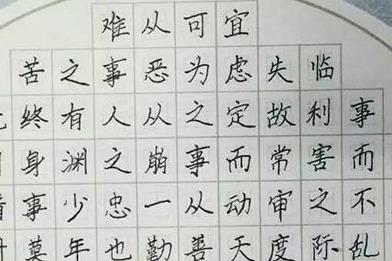 事而不乱
临利害之际
失故常审度
宜虑定而动天
可为之事从善
从恶从崩一勤
难事人之忠也
之有渊少年
苦终身事莫